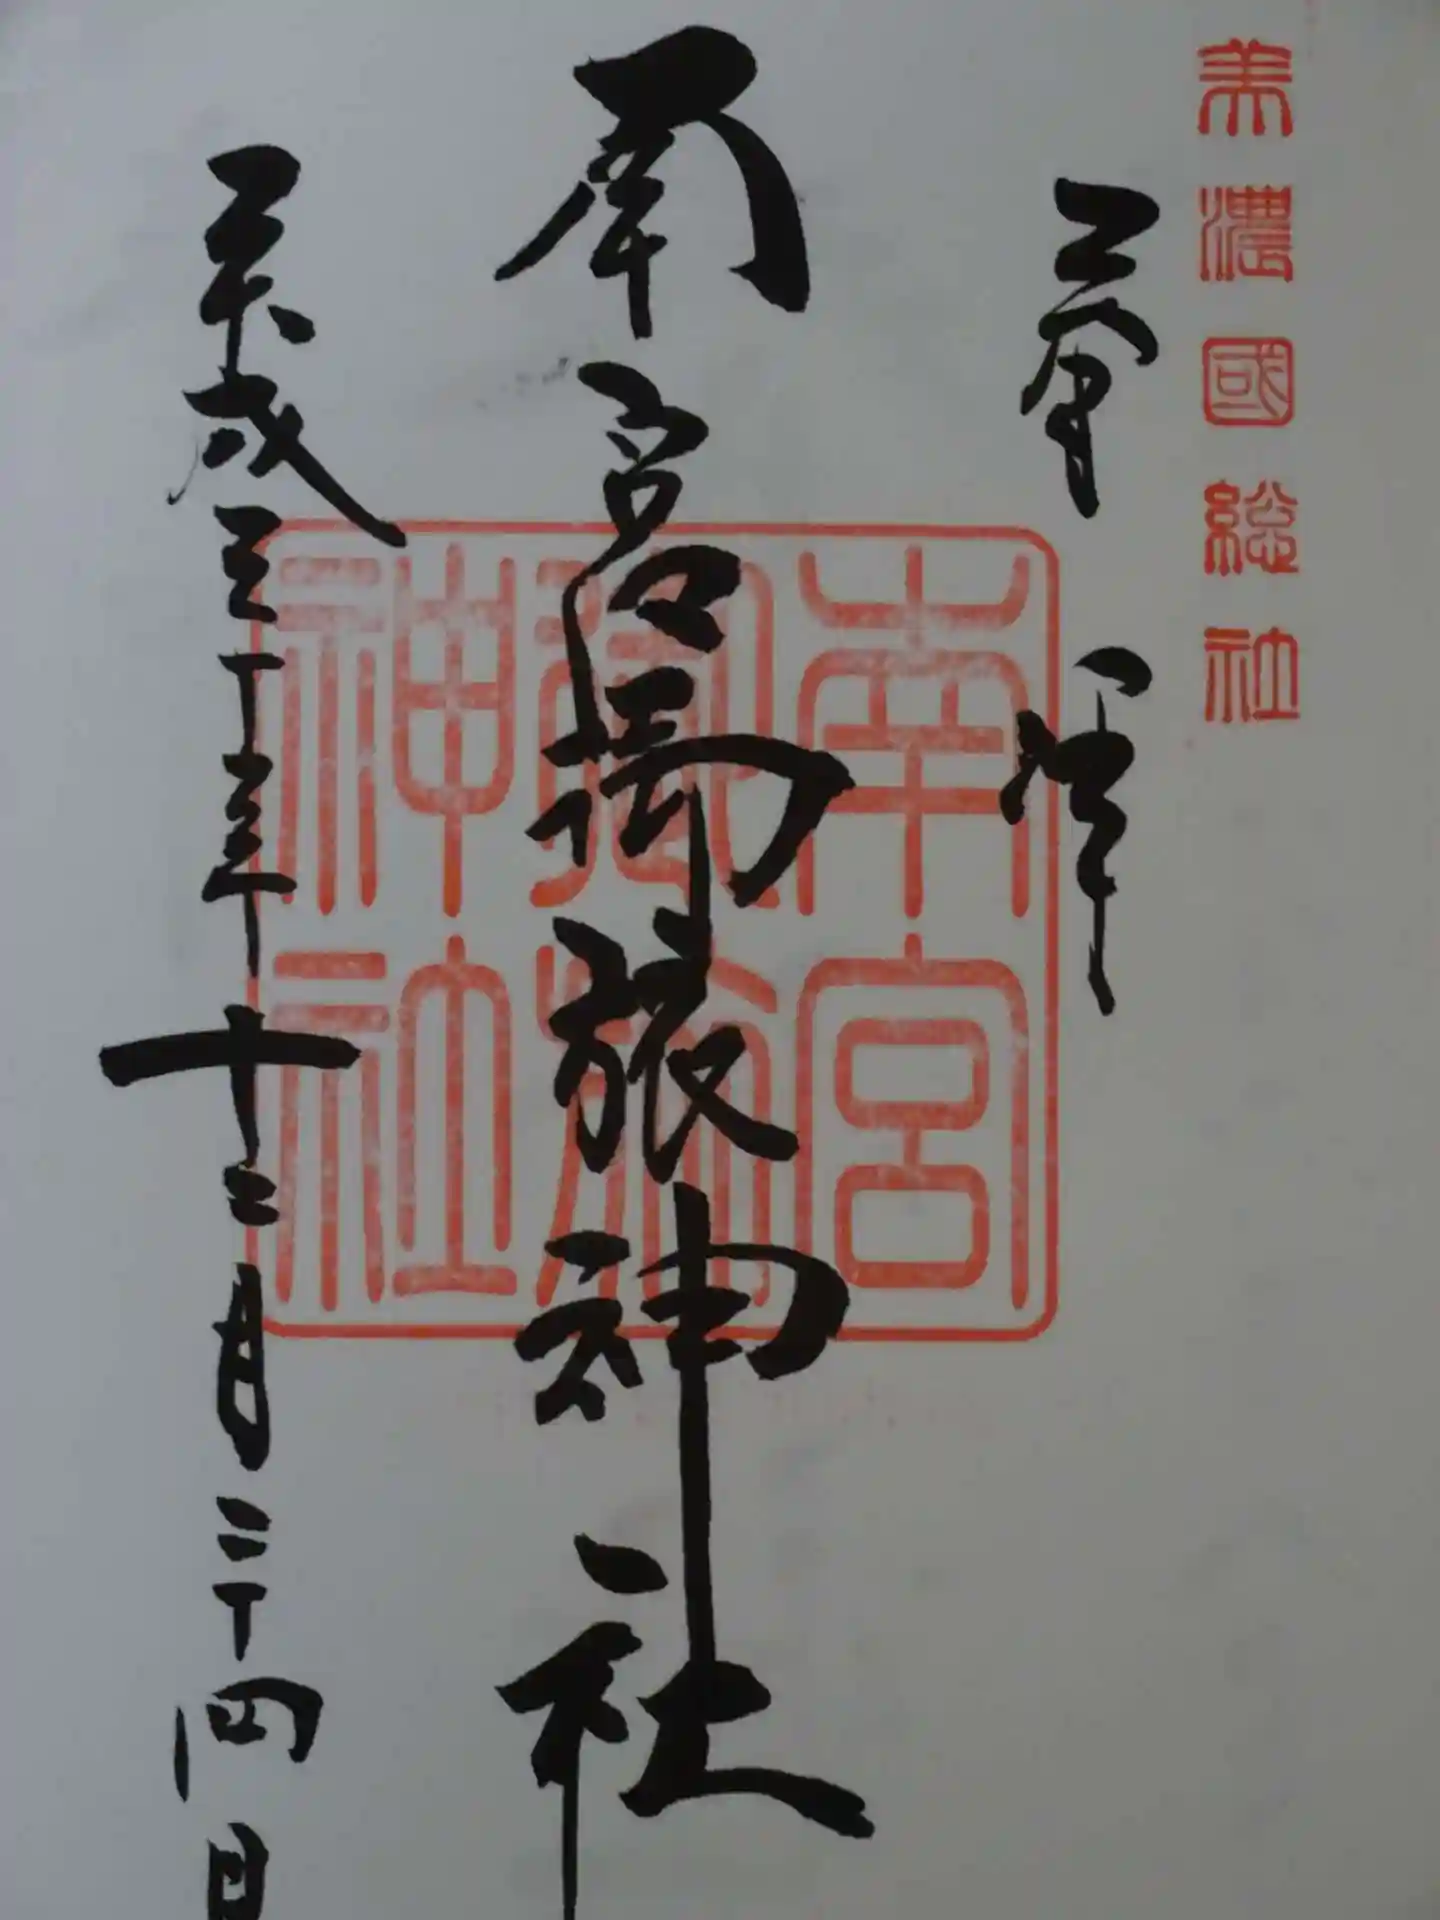 美濃國総社
奉拝
南宮御旅神社
南宮御旅神社
平成三十年十二月二十四日